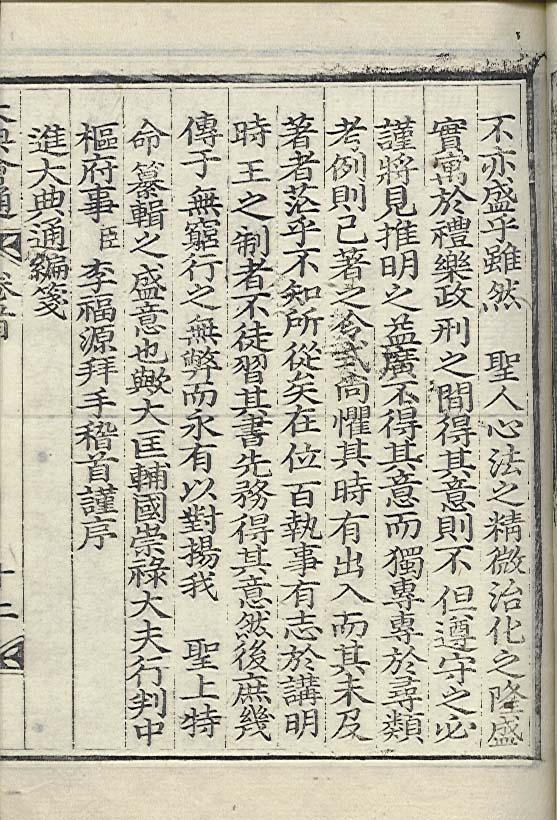 不亦盛乎雖然　聖人心法之精微治化之隆盛
實寓於禮樂政刑之間得其意則不但遵守之必
謹將見推明之益廣不得其意而獨專專於尋類
考例則已著之令式尚懼其時有出入而其未及
著者茫乎不知所從矣在位百執事有志於講明
時王之制者不徒習其書先務得其意然後庶幾
傳于無窮行之無弊而永有以對揚我　聖上特
命纂輯之盛意也歟大匡輔國崇祿大夫行判中
樞府事臣李福源拜手稽首謹序
進大典通編箋
大典會通 卷首 十二